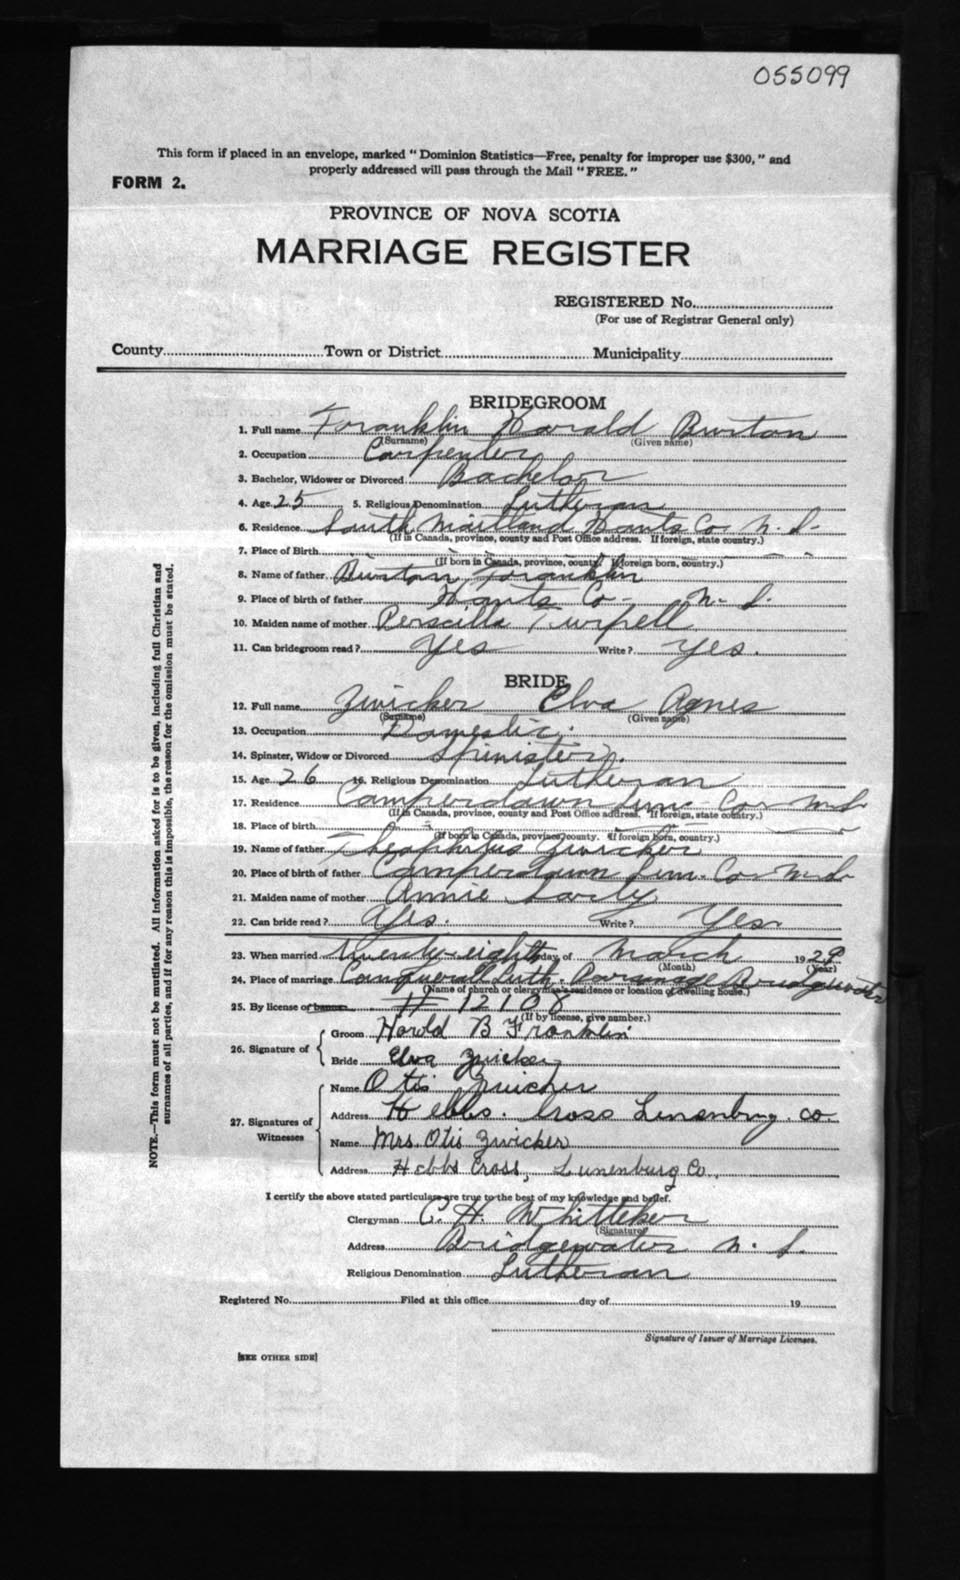 055099
This form if placed in an envelope, marked "Dominion Statistics—Free, penalty for improper use $300," and
properly addressed will pass through the Mail "FREE."
FORM 2.
PROVINCE OF NOVA SCOTIA
MARRIAGE REGISTER
REGISTERED No.
(For use of Registrar General only)
County Town or District Municipality
BRIDEGROOM
1. Full name Franklin Harald Burton
(Surname) (Given name)
2. Occupation Carpenter
3. Bachelor, Widower or Divorced Bachelor
4. Age 25 5. Religious Denomination Lutheran
6. Residence South Maitland Hants Co N. S.
(If in Canada, province, county and Post Office address. If foreign, state country.)
7. Place of Birth " " " " "
(If born in Canada, province, county. If foreign born, country.)
8. Name of father Burton Franklin
9. Place of birth of father Hants Co- N. S.
10. Maiden name of mother Perscilla Turpell
11. Can bridegroom read? Yes Write? Yes.
BRIDE
12. Full name Zwicker Elva Agnes
(Surname) (Given name)
13. Occupation Domestic.
14. Spinster, Widow or Divorced Spinister.
15. Age 26 16. Religious Denomination Lutheran
17. Residence Camperdown Lun- Co- N. S.
(If in Canada, province, county and Post Office address. If foreign, state country.)
18. Place of birth
(If born in Canada, province, county. If foreign born, country.)
19. Name of father Theophilus Zwicker
20. Place of birth of father Camperdown Lun. Co- N. S.
21. Maiden name of mother Annie
22. Can bride read? Yes. Write? Yes.
23. When married Twenty-eighth day of March 1929
(Month) (Year)
24. Place of marriage Conquerall Luth. Parsonage Bridgewater
(Name of church or clergyman's residence or location of dwelling house.)
25. By license or banns # 12108
(If by license, give number.)
26. Signature of { Groom Harold B Franklin
Bride Elva Zwicker
27. Signatures of Witnesses { Name Otis Zwicker
Address Hebbs. Cross Lunenburg. co.
Name Mrs. Otis Zwicker
Address Hebbs Cross, Lunenburg Co.
I certify the above stated particulars are true to the best of my knowledge and belief.
Clergyman C. H. Whitteker
(Signature)
Address Bridgewater N. S.
Religious Denomination Lutheran
Registered No. Filed at this office day of 19
Signature of Issuer of Marriage Licenses.
[SEE OTHER SIDE]
NOTE.—This form must not be mutilated. All information asked for is to be given, including full Christian and
surnames of all parties, and if for any reason this is impossible, the reason for the omission must be stated.